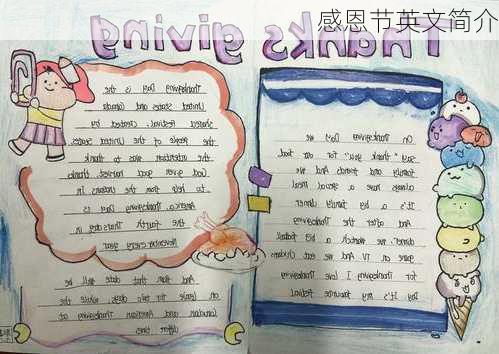 感恩节英文简介
Thanks giving
On Thanksgiving Day we
say "thank you" for our food
family and friends And we
always have a special meal
It's a big family dinner
And after the Thanksgiving
dinner we watch a big football
game on TV And we eat chicken
for Thanksgiving I love Thanksgiving
Day It's my favourite festival
Thanksgiving Day is the
United States and Canada
shared festival, created by
the people of the United States
the intention was to thank
God given good harvest thanks
to help from the Indians In
America, Thanksgiving Day is
the fourth Thursday in
November every year
And from that date will be
on to days, while the
Canadian and American Thanksgiving at
differ times